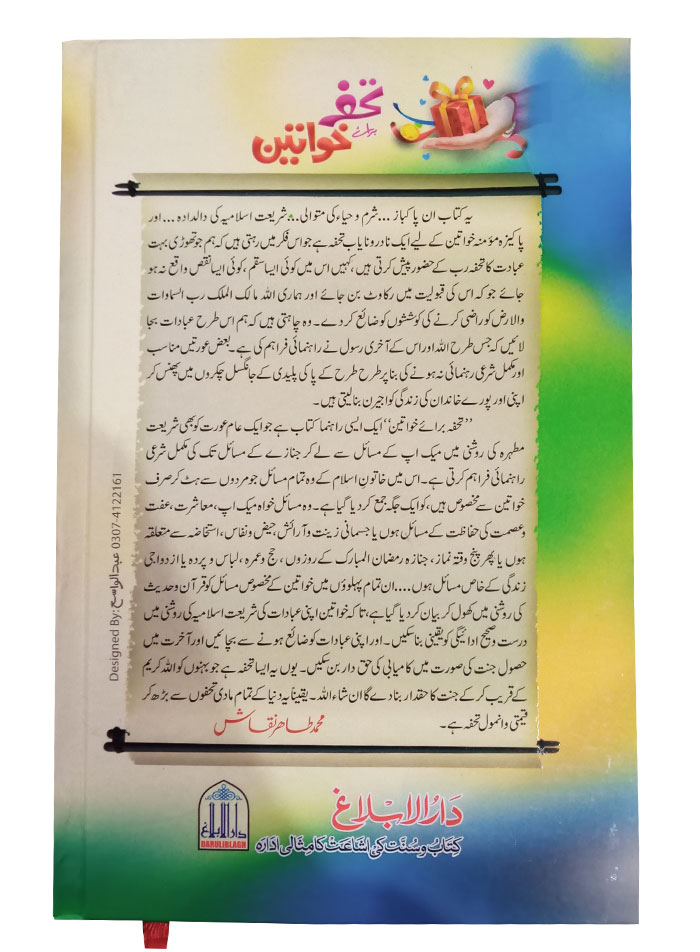 تحفہ برائے خواتین
یہ کتاب ان پاکباز... شرم و حیاء کی متوالی... شریعت اسلامیہ کی دالدادہ... اور
پاکیزہ مؤمنہ خواتین کے لیے ایک نادر و نایاب تحفہ ہے جو اس فکر میں رہتی ہیں کہ ہم جو تھوڑی بہت
عبادت کا تحفہ رب کے حضور پیش کرتی ہیں، کہیں اس میں کوئی ایسا سقم، کوئی ایسا نقص واقع نہ ہو
جائے جو کہ اس کی قبولیت میں رکاوٹ بن جائے اور ہماری اللہ مالک الملک رب السماوات
والارض کو راضی کرنے کی کوششوں کو ضائع کر دے۔ وہ چاہتی ہیں کہ ہم اس طرح عبادات بجا
لائیں کہ جس طرح اللہ اور اس کے آخری رسول نے راہنمائی فراہم کی ہے۔ بعض عورتیں مناسب
اور مکمل شرعی رہنمائی نہ ہونے کی بنا پر طرح طرح کے پاکی پلیدی کے جانگسل چکروں میں پھنس کر
اپنی اور پورے خاندان کی زندگی کو اجیرن بنا لیتی ہیں۔
’’تحفہ برائے خواتین‘‘ ایک ایسی راہنما کتاب ہے جو ایک عام عورت کو بھی شریعت
مطہرہ کی روشنی میں میک اپ کے مسائل سے لے کر جنازے کے مسائل تک کی مکمل شرعی
راہنمائی فراہم کرتی ہے۔ اس میں خاتونِ اسلام کے وہ تمام مسائل جو مردوں سے ہٹ کر صرف
خواتین سے مخصوص ہیں، کو ایک جگہ جمع کر دیا گیا ہے۔ وہ مسائل خواہ میک اپ، معاشرت، عفت
و عصمت کی حفاظت کے مسائل ہوں یا جسمانی زینت و آرائش، حیض و نفاس، استحاضہ سے متعلقہ
ہوں یا پھر پنج وقتہ نماز، جنازہ رمضان المبارک کے روزوں، حج و عمرہ، لباس و پردہ یا ازدواجی
زندگی کے خاص مسائل ہوں.... ان تمام پہلوؤں میں خواتین کے مخصوص مسائل کو قرآن و حدیث
کی روشنی میں کھول کر بیان کر دیا گیا ہے، تاکہ خواتین اپنی عبادات کی شریعت اسلامیہ کی روشنی میں
درست و صحیح ادائیگی کو یقینی بنا سکیں۔ اور اپنی عبادات کو ضائع ہونے سے بچائیں اور آخرت میں
حصول جنت کی صورت میں کامیابی کی حق دار بن سکیں۔ یوں یہ ایسا تحفہ ہے جو بہنوں کو اللہ کریم
کے قریب کر کے جنت کا حقدار بنا دے گا ان شاء اللہ۔ یقیناً یہ دنیا کے تمام مادی تحفوں سے بڑھ کر
قیمتی و انمول تحفہ ہے۔
محمد طاہر نقاش
Designed By: عبدالواسع 0307-4122161
دارالابلاغ
کتاب و سنت کی اشاعت کا مثالی ادارہ
دارالابلاغ
DARULIBLAGH